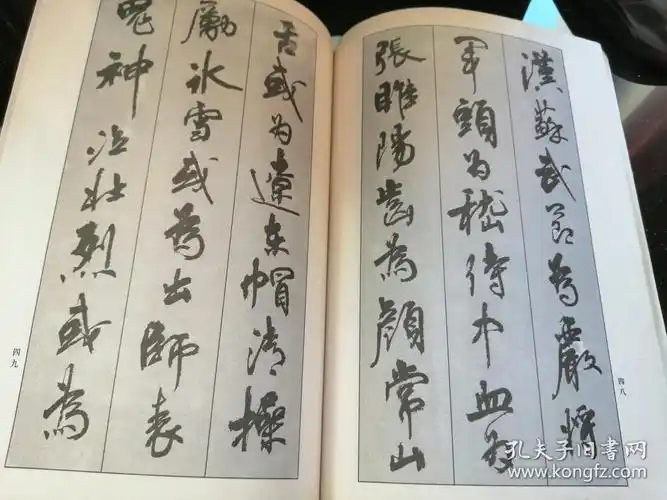 漢蘇武節為嚴將
軍頭為嵇侍中血為
張睢陽齒為顏常山
舌或為遼東帽清操
厲冰雪或為出師表
鬼神泣壯烈或為
四八
四九
孔夫子旧书网
www.kongfz.com